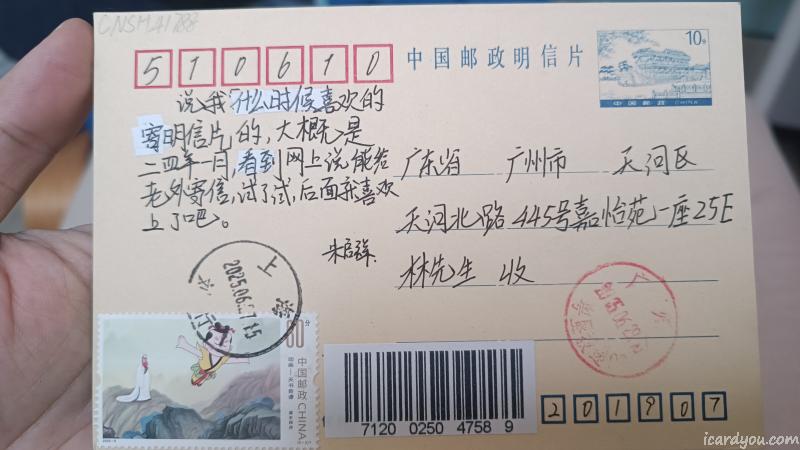 510610
中国邮政明信片
10分
中国邮政 CHINA
说我什么时候喜欢的
寄明信片的,大概是
二四年一月,看到网上说能给
老外寄信,试了试,后面亲喜欢
上了吧。
广东省 广州市 天河区
天河北路445号嘉怡苑一座25E
林先生 收
上海
2025.06.27.15
80分
中国邮政 CHINA
7120 0250 4758 9
201907
icardyou.com